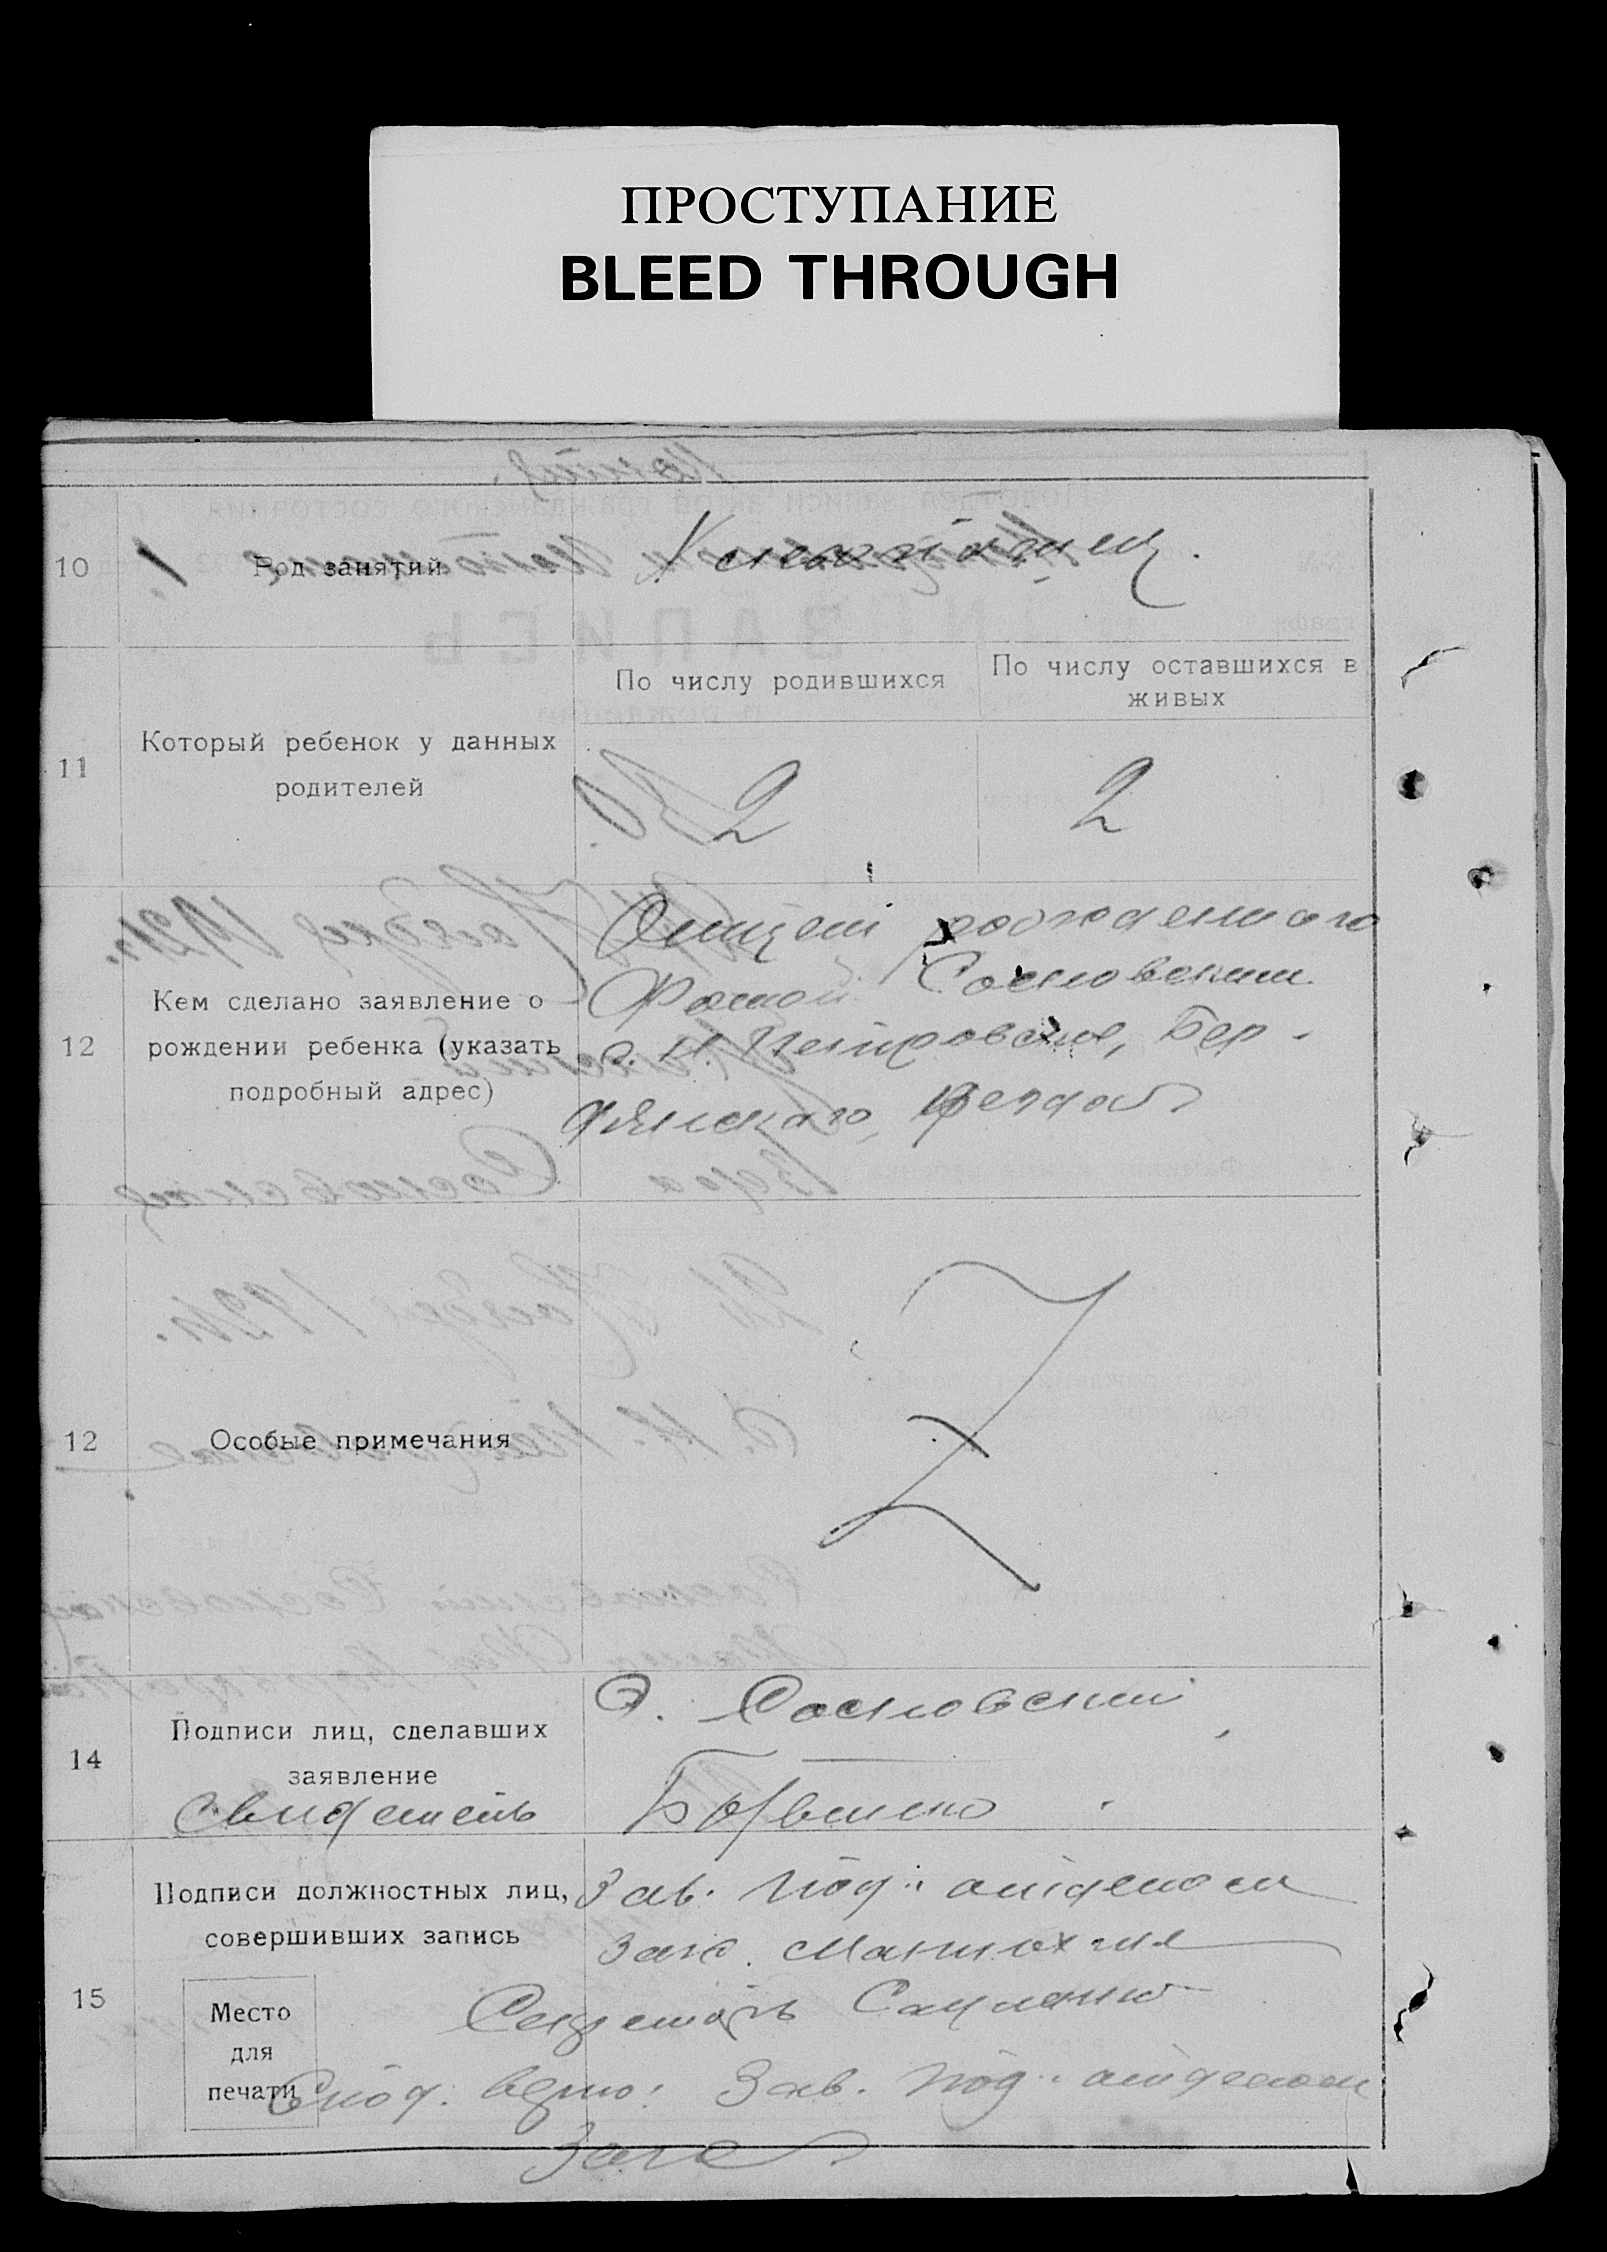 ПРОСТУПАНИЕ
BLEED THROUGH
10
Род занятий
11
Который ребенок у данных
родителей
По числу родившихся
По числу оставшихся в
живых
2
2
12
Кем сделано заявление о
рождении ребенка (указать
подробный адрес)
Отцем рожденного
Фомой Сосновским
с. Н. Петровские, Бер-
дянского,
12
Особые примечания
Z
14
Подписи лиц, сделавших
заявление
Свидетель
Ф. Сосновский
15
Подписи должностных лиц,
совершивших запись
Зав. Под. отделом
Загс.
Секретарь
Место
для
печати
С под. верно: Зав. Под. отделом
Загс